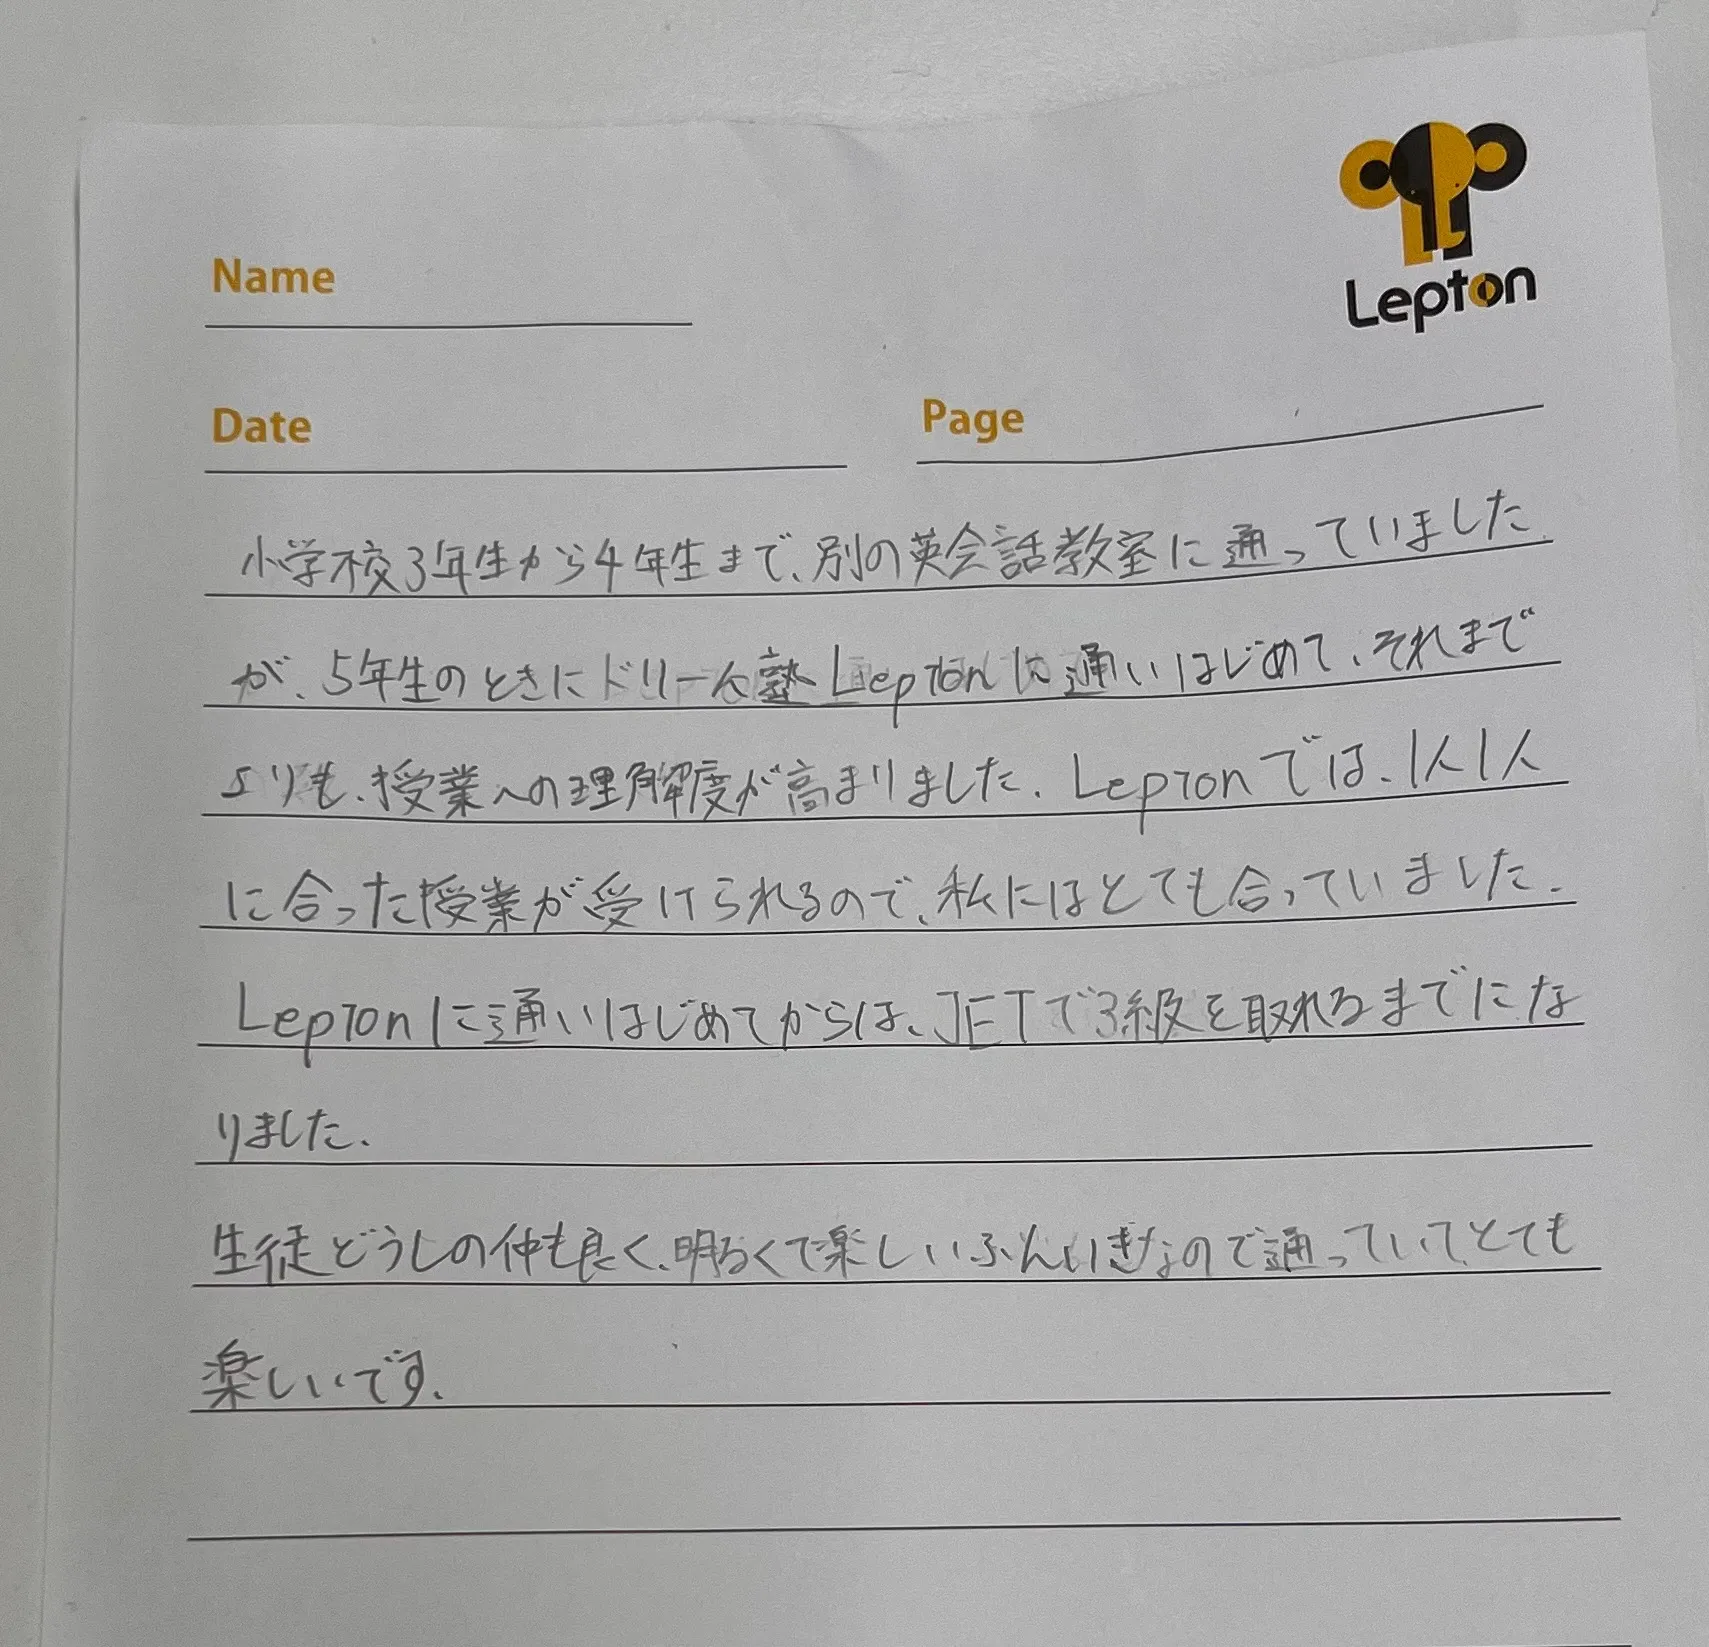 Lepton
Name
Date
Page
小学校3年生から4年生まで、別の英会話教室に通っていました
が、5年生のときにドリーム塾Leptonに通いはじめて、それまで
よりも、授業への理解度が高まりました。Leptonでは、1人1人
に合った授業が受けられるので、私にはとても合っていました。
Leptonに通いはじめてからは、JETで3級を取れるまでにな
りました。
生徒どうしの仲も良く、明るくて楽しいふんいきなので通っていてとても
楽しいです。